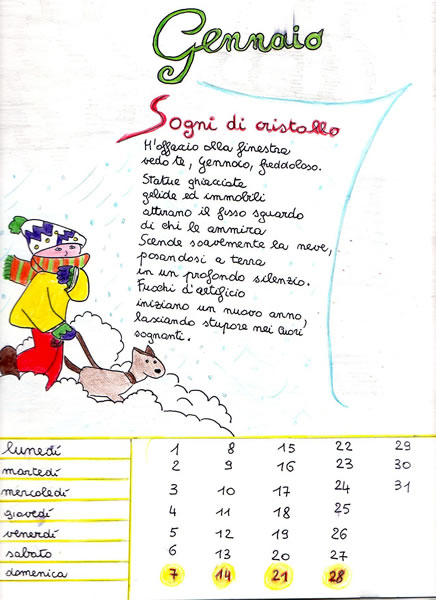 Gennaio
Sogni di cristallo
M'affaccio alla finestra
vedo te, Gennaio, freddoloso.
Statue ghiacciate
gelide ed immobili
attirano il fisso sguardo
di chi le ammira
Scende soavemente la neve,
posandosi a terra
in un profondo silenzio.
Fuochi d'artificio
iniziano un nuovo anno,
lasciando stupore nei cuori
sognanti.
lunedí 1 8 15 22 29
martedí 2 9 16 23 30
mercoledí 3 10 17 24 31
giovedí 4 11 18 25
venerdí 5 12 19 26
sabato 6 13 20 27
domenica 7 14 21 28